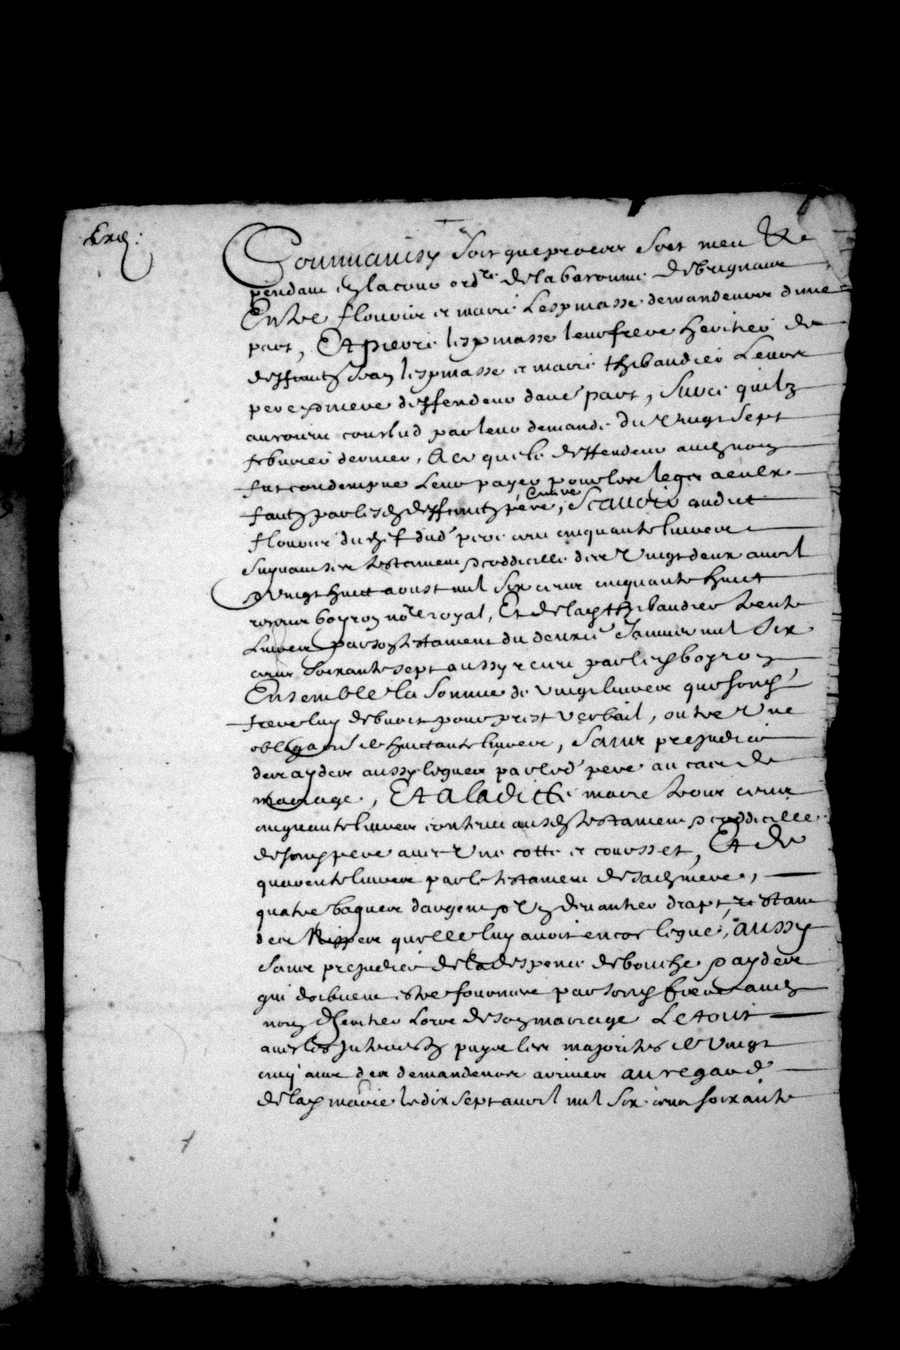 Comme ainsy soit que proces soit meu &
pendant en la cour ord.re de la baronnie de brignaux
Entre flouvie et marie Lespinasse demandeurs d'une
part, Et pierre lespinasse leur frere heritier de
deffunctz Jean lespinasse et marie thibaudier Leurs
pere & mere deffendeur d'autre part, Surce quilz
auroient conclud par leur demande du vingt sept
febvrier dernier, A ce que le deffendeur audict nom
fut condempné Leur payer pour les legs a eulx
faictz par lesd deffunctz pere, & mere Scavoir audict
flouvie du chef dud pere cent cinquante livres
Suyvant ses testament & coddicille des vingt deux avril
& vingt huict aoust mil six cens cinquante huict
receus boyron no.re royal, Et de lad thibaudier trente
Livres par son testament du janvier mil six
cens soixante sept aussy receu par led boyron
Ensemble la somme de vingt livres que sond
frere luy debvoit pour prest verbail, outre une
obliga.on de huictante livres, Sans prejudice
des aydes aussy leguez par led pere au cas de
mariage, Et a ladicte marie trois cens
cinquante livres contenu ausd testament & coddicille
de sond pere avec une cotte et corsset, Et de
quarente livres par le testament de sad mere,
quatre bagues d'argent & un devantier drapt,
des nippes quelle luy avoit encor legué, aussy
Sans prejudice de la despence de bouche & aydes
qui doibvent estre fournire par sond frere aud
nom d'heritier Lors de son mariage Le tout
avec les Interestz puys les majorités de vingt
cinq ans des demandeurs arrivées au regard
de lad marie le dix sept avril mil six cens soixante